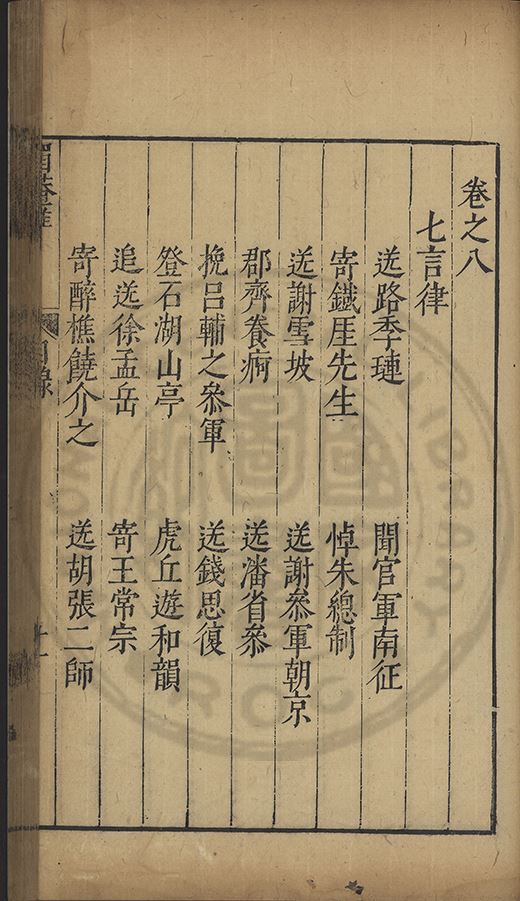 卷之八
七言律
送路季璉　聞官軍南征
寄鐵厓先生　悼朱總制
送謝雪坡　送謝叅軍朝京
郡齊養痾　送潘省叅
挽呂輔之叅軍　送錢思復
登石湖山亭　虎丘遊和韻
追送徐孟岳　寄王常宗
寄醉樵饒介之　送胡張二師
目錄